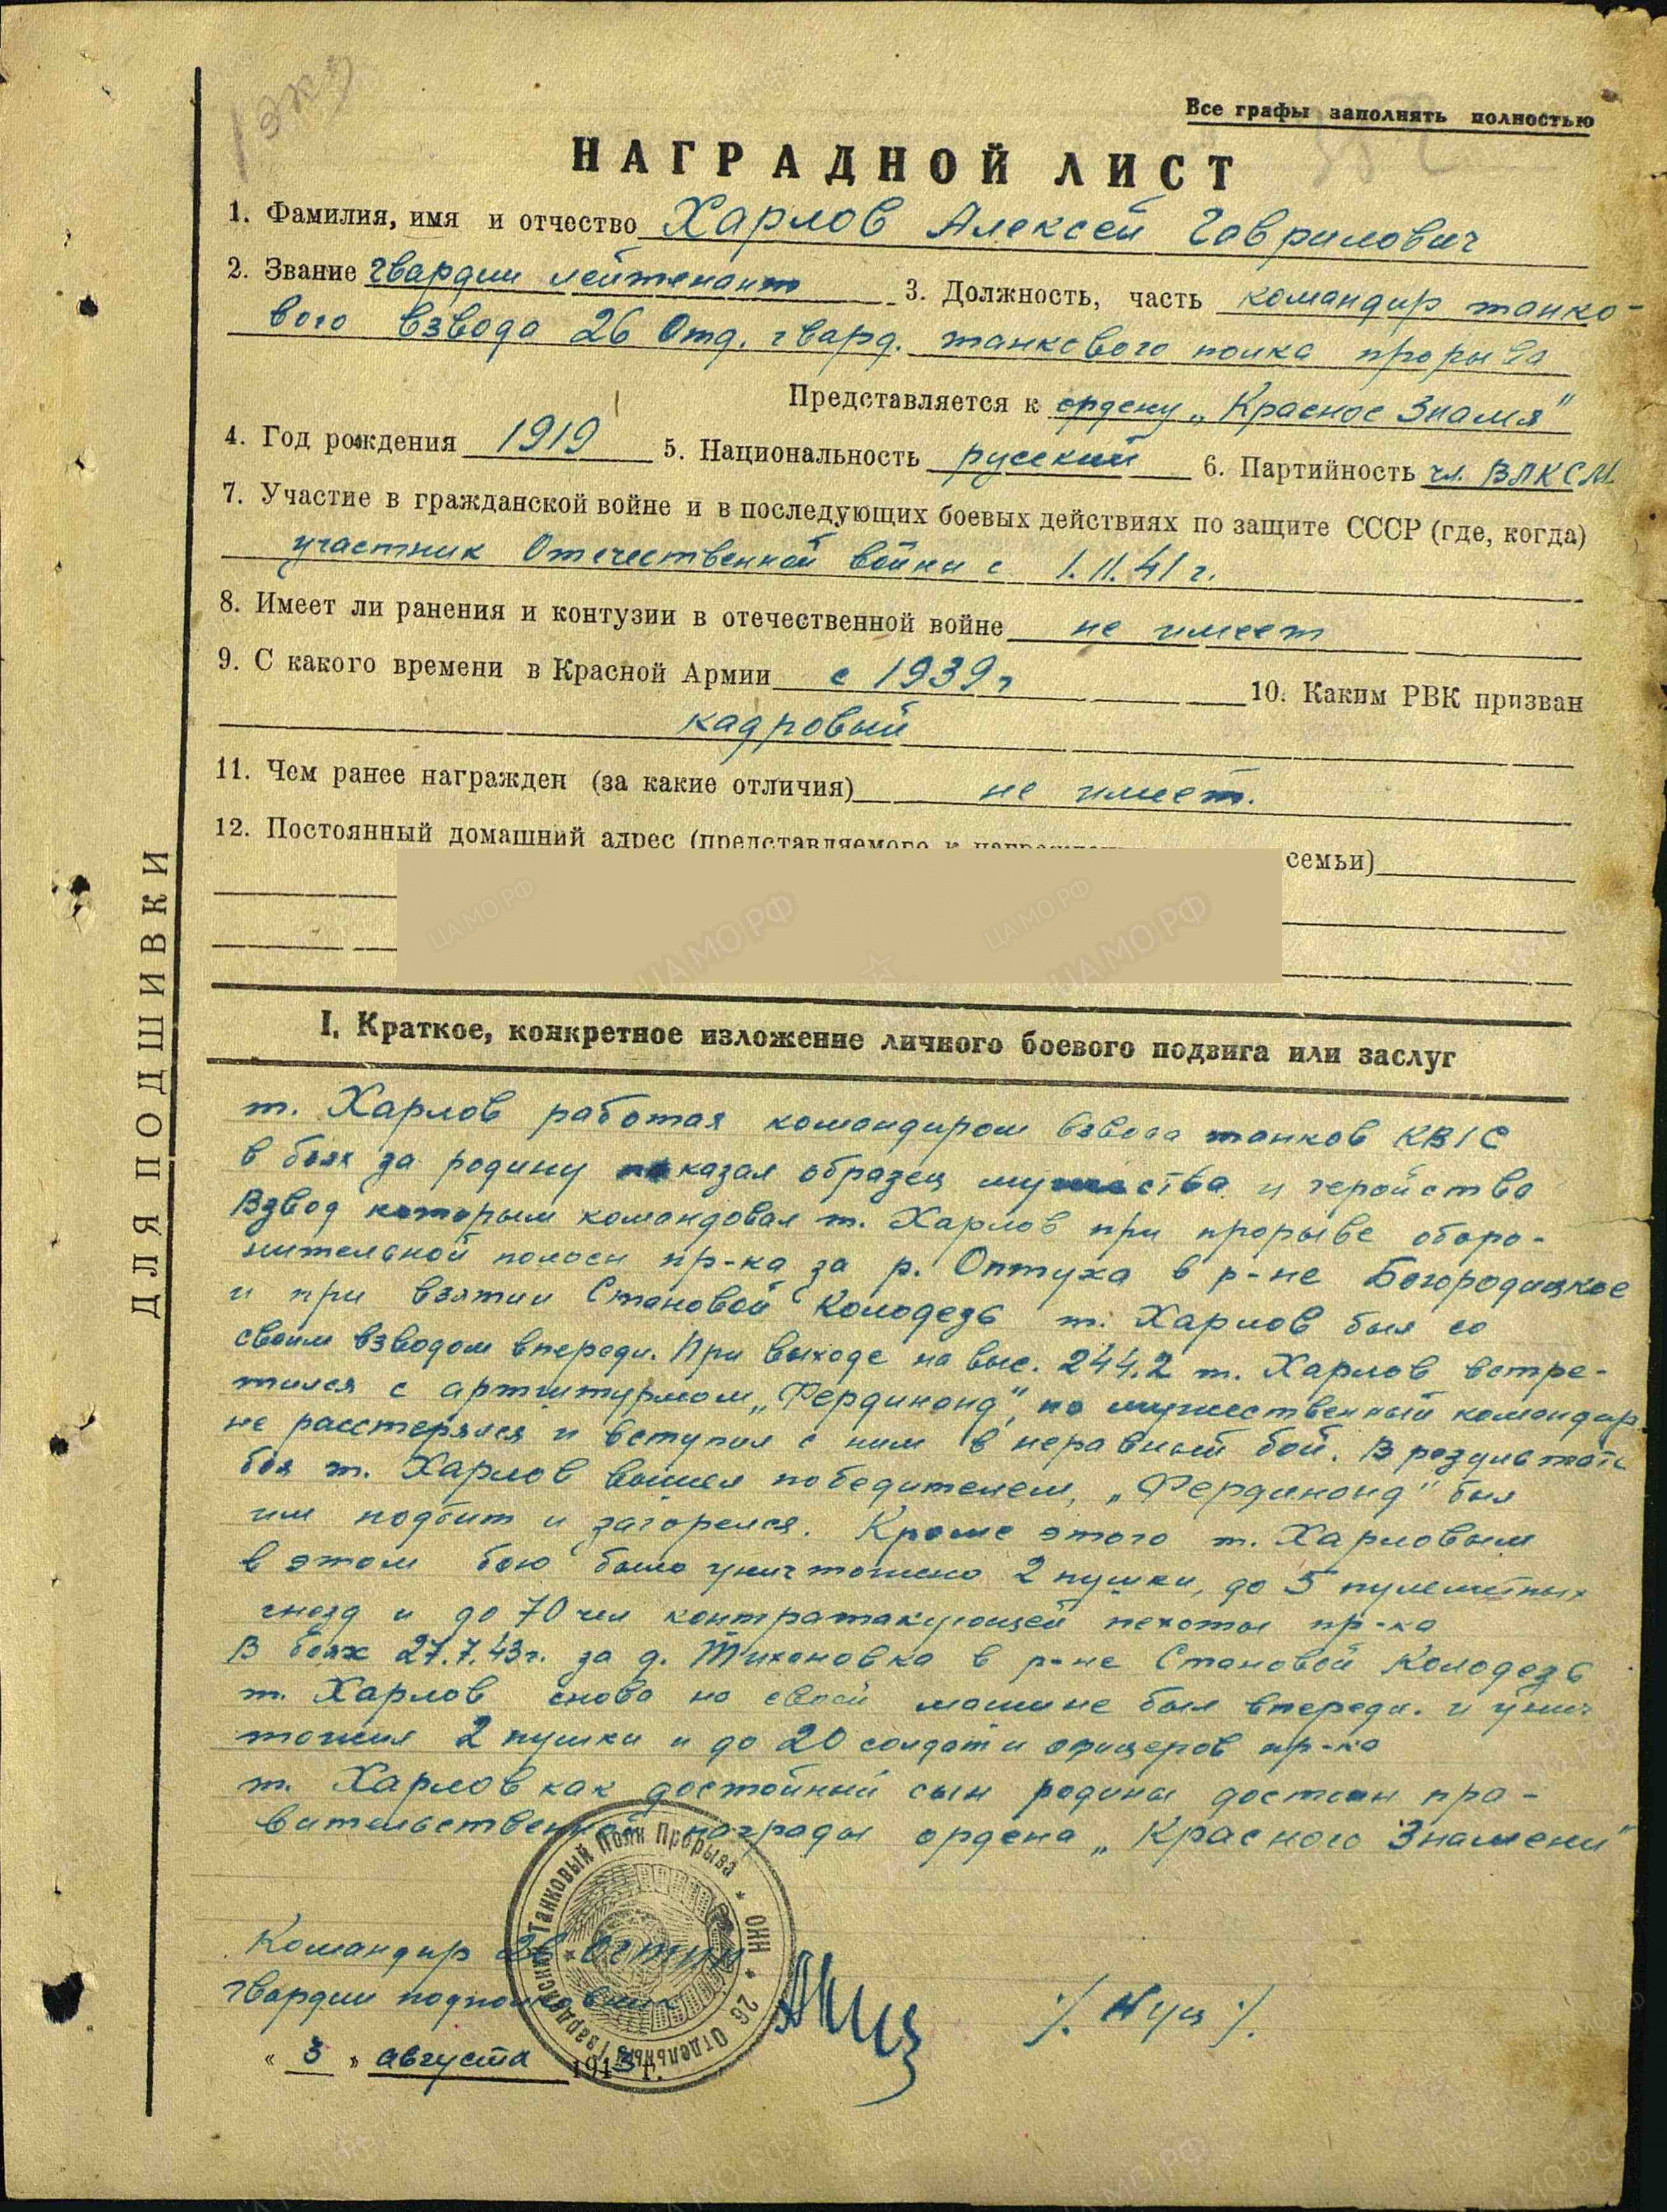 1 экз
Все графы заполнять полностью
НАГРАДНОЙ ЛИСТ
1. Фамилия, имя и отчество Харлов Алексей Гаврилович
2. Звание гвардии лейтенант 3. Должность, часть командир танко-
вого взвода 26 Отд. гвард. танкового полка прорыва
Представляется к ордену „Красное Знамя"
4. Год рождения 1919 5. Национальность русский 6. Партийность чл. ВЛКСМ
7. Участие в гражданской войне и в последующих боевых действиях по защите СССР (где, когда)
участник Отечественной войны с 1.11.41 г.
8. Имеет ли ранения и контузии в отечественной войне не имеет
9. С какого времени в Красной Армии с 1939 г 10. Каким РВК призван
кадровый
11. Чем ранее награжден (за какие отличия) не имеет.
12. Постоянный домашний адрес (представляемого к семьи)
ДЛЯ ПОДШИВКИ
I. Краткое, конкретное изложение личного боевого подвига или заслуг
т. Харлов работая командиром взвода танков КВ1С
в боях за родину показал образец мужества и геройства
Взвод которым командовал т. Харлов при прорыве оборо-
нительной полосы пр-ка за р. Оптуха в р-не Богородицкое
и при взятии Становой Колодезь т. Харлов был со
своим взводом впереди. При выходе на выс. 244.2 т. Харлов встре-
тился с артштурмом „Фердинанд", но мужественный командир
не расстерялся и вступил с ним в неравный бой. В результате
боя т. Харлов вышел победителем, „Фердинанд" был
им подбит и загорелся. Кроме этого т. Харловым
в этом бою было уничтожено 2 пушки, до 5 пулеметных
гнезд и до 70 чел контратакующей пехоты пр-ка
В боях 27.7.43г. за д. Тихоновка в р-не Становой Колодезь
т. Харлов снова на своей машине был впереди. и унич
тожил 2 пушки и до 20 солдат и офицеров пр-ка
т. Харлов как достойный сын родины достоин пра-
вительственной награды ордена „Красного Знамени"
Командир 26 ОГТПП
гвардии подполковник /. Нуц /.
« 3 » августа 1943 г.
26 Отдельный Гвардейский Танковый Полк Прорыва * НКО *
ЦАМО.РФ
ЦАМО.РФ
ЦАМО.РФ
ЦАМО.РФ